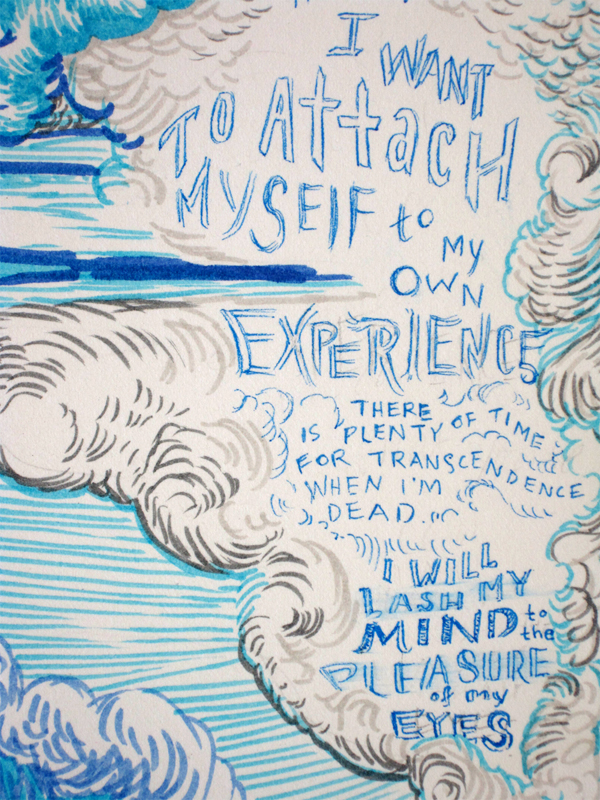 I WANT
TO AttacH
MYSElF to
MY
OWN
EXPERIENCE
THERE
IS PLENTY OF TIME
FOR TRANSCENDENCE
WHEN I'M
DEAD.
I WILL
LASH MY
MIND to
the
PLEASURE
of my
EYES